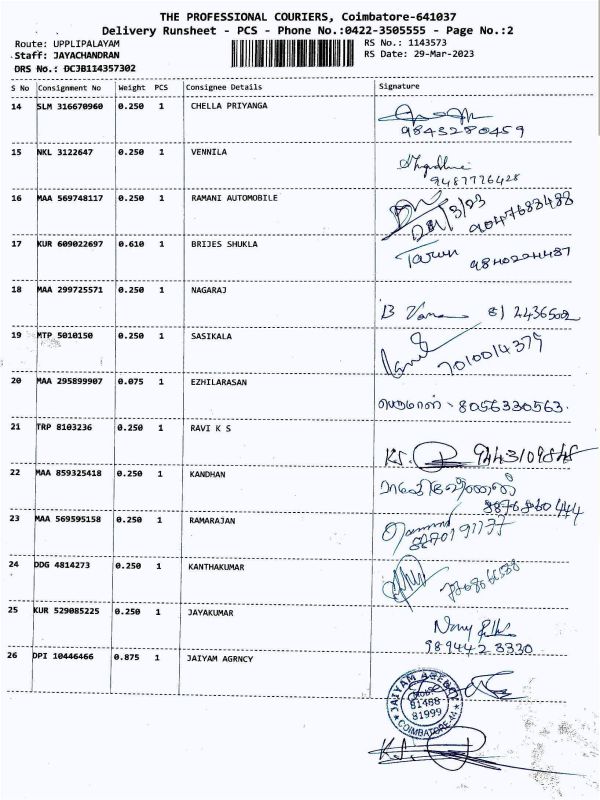 THE PROFESSIONAL COURIERS, Coimbatore-641037
Delivery Runsheet - PCS - Phone No.:0422-3505555 - Page No.:2
Route: UPPLIPALAYAM RS No.: 1143573
Staff: JAYACHANDRAN RS Date: 29-Mar-2023
DRS No.: DCJB114357302
S No Consignment No Weight PCS Consignee Details Signature
14 SLM 316670960 0.250 1 CHELLA PRIYANGA
9843280459
15 NKL 3122647 0.250 1 VENNILA
9487776428
16 MAA 569748117 0.250 1 RAMANI AUTOMOBILE
9047683488
17 KUR 609022697 0.610 1 BRIJES SHUKLA
Tarun
18 MAA 299725571 0.250 1 NAGARAJ
19 MTP 5010150 0.250 1 SASIKALA
7010014379
20 MAA 295899907 0.075 1 EZHILARASAN
பெருமாள் - 8056330563.
21 TRP 8103236 0.250 1 RAVI K S
KS.
22 MAA 859325418 0.250 1 KANDHAN
23 MAA 569595158 0.250 1 RAMARAJAN
24 DDG 4814273 0.250 1 KANTHAKUMAR
25 KUR 529085225 0.250 1 JAYAKUMAR
9894423330
26 DPI 10446466 0.875 1 JAIYAM AGRNCY
JAIYAM AGENCY
81488
81999
COIMBATORE-44